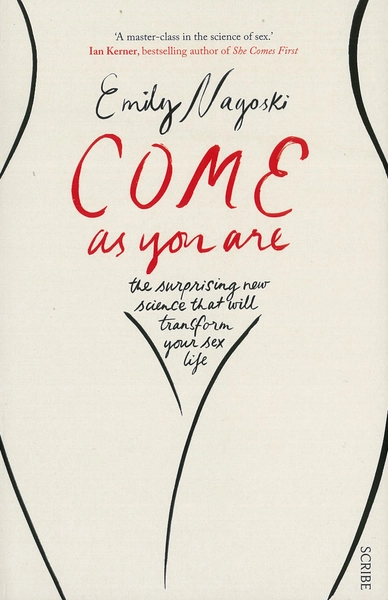 ‘A master-class in the science of sex.’
Ian Kerner, bestselling author of She Comes First
Emily Nagoski
COME
as you are
the surprising new
science that will
transform
your sex
life
SCRIBE